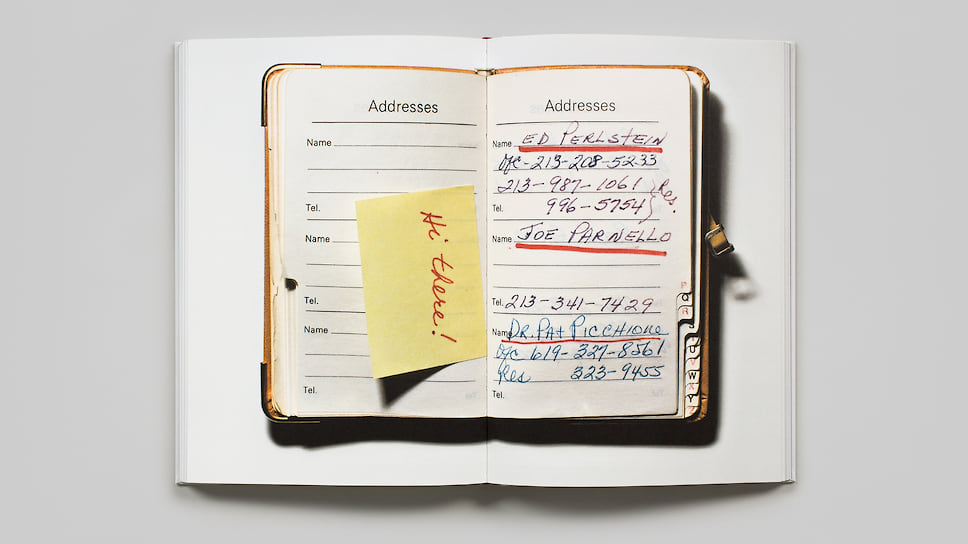 Addresses
Name
Tel.
Name
Tel.
Name
Tel.
Hi there!
Addresses
Name ED PERLSTEIN
Ofc-213-208-5233
213-987-1061 } Res.
Tel. 996-5754
Name JOE PARNELLO
Tel. 213-341-7429
Name DR. PAT PICCHIONE
Ofc 619-327-8561
Res 323-9455
Tel.
Q
R
W
X
Y
Z